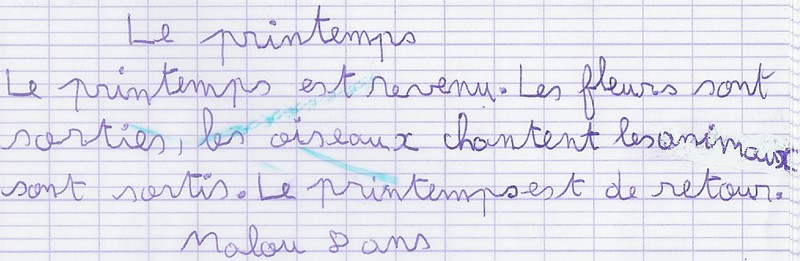 Le printemps
Le printemps est revenu. Les fleurs sont
sorties, les oiseaux chantent les animaux
sont sortis. Le printemps est de retour.
Malou 8 ans